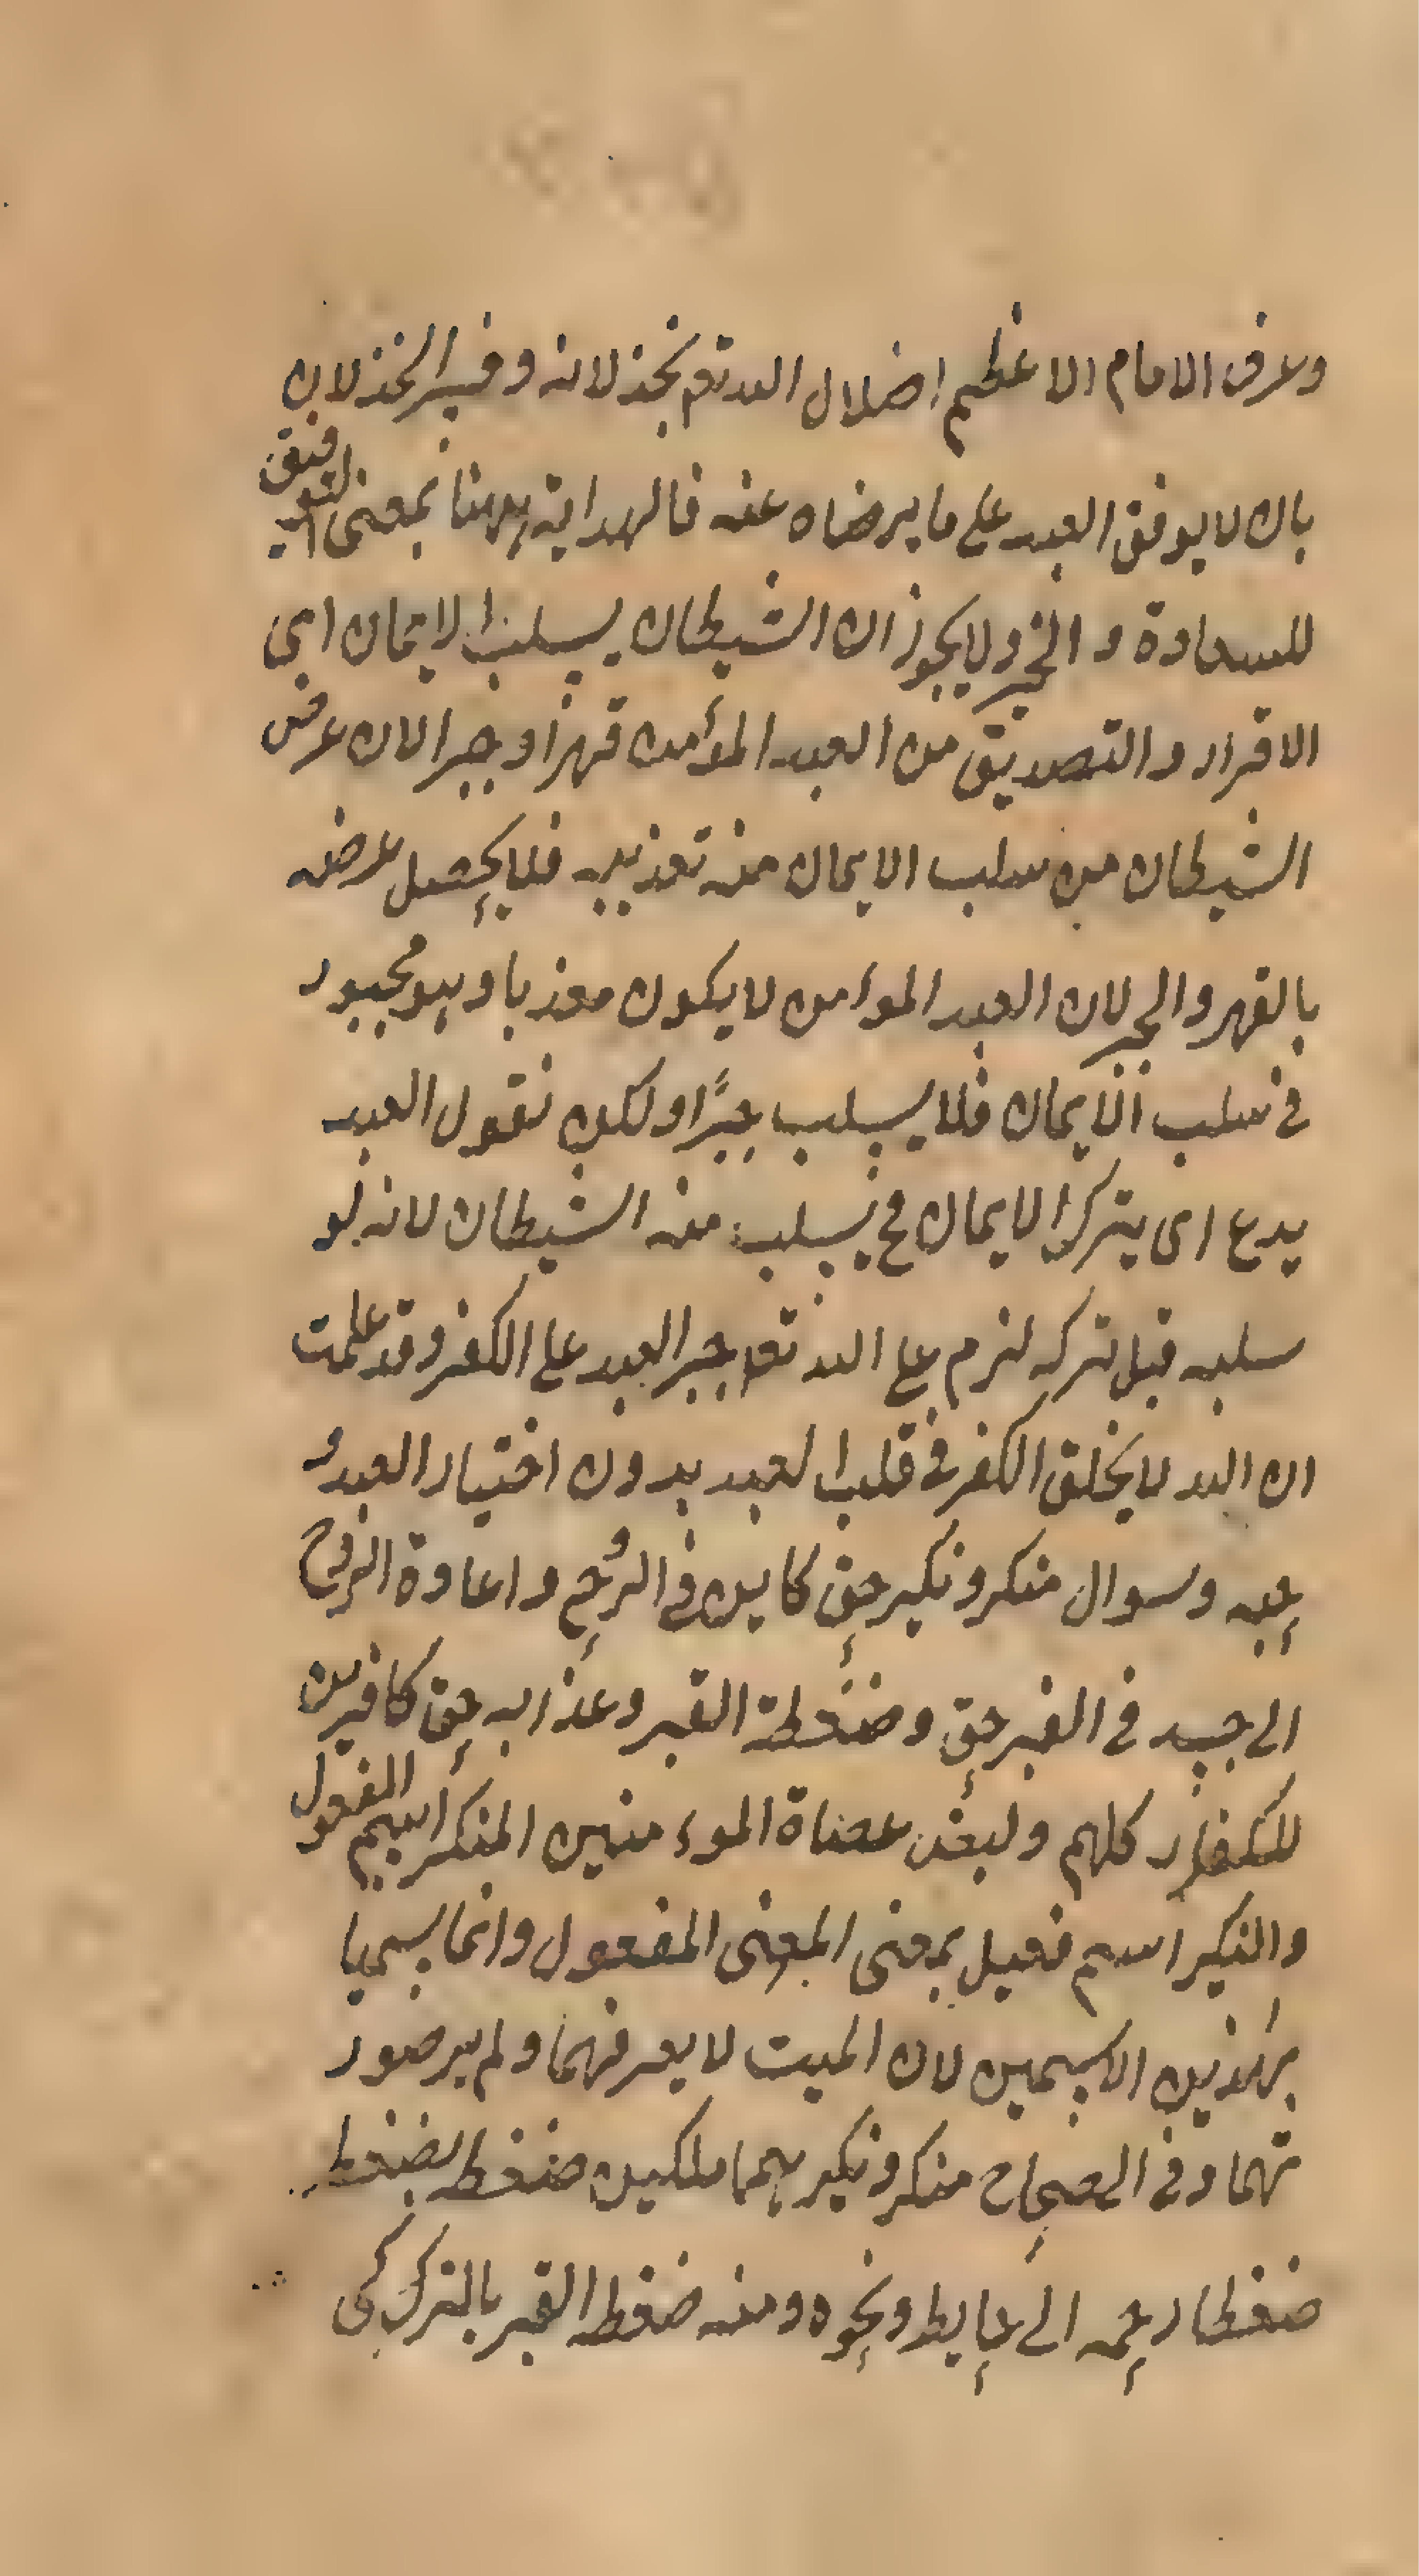 وعرف الامام الاعظم اضلال الله تعم بخذلانه وفسر الخذلان
بان لا يوفق العبد على ما يرضاه عنه فالهداية ههنا بمعنى التوفيق
للسعادة و الخير ولا يجوز ان الشيطان يسلب الايمان اى
الاقرار والتصديق من العبد المؤمن قهرا وجبرا لان غرض
الشيطان من سلب الايمان منه تعذيبه فلا يحصل غرضه
بالقهر والجبر لان العبد المؤمن لا يكون معذبا وهو مجبور
فى سلب الايمان فلا يسلب جبرًا ولكن نقول العبد
يدع اى يترك الايمان فح يسلب منه الشيطان لانه لو
سلبه قبل تركه لزم على الله تعم جبر العبد على الكفر وقد علمت
ان الله لا يخلق الكفر فى قلب العبد بدون اختيار العبد و
حبه وسوال منكر ونكير حق كاين فى واعادة الروح
الى جسد فى القبر حق وضغطة القبر وعذابه حق كافرين
للكفار كلهم ولبعض عصاة المؤمنين المنكر اسم المفعول
والنكير اسم فعيل بمعنى المعنى المفعول وانما يسميا
بهذين الاسمين لان الميت لا يعرفهما ولم ير صور
تهما وفى الصحاح منكر ونكير هما ملكين ضغطه يضغط
ضغطا زحمه الى حايط ونحوه ومنه ضغطه القبر بالترك كى